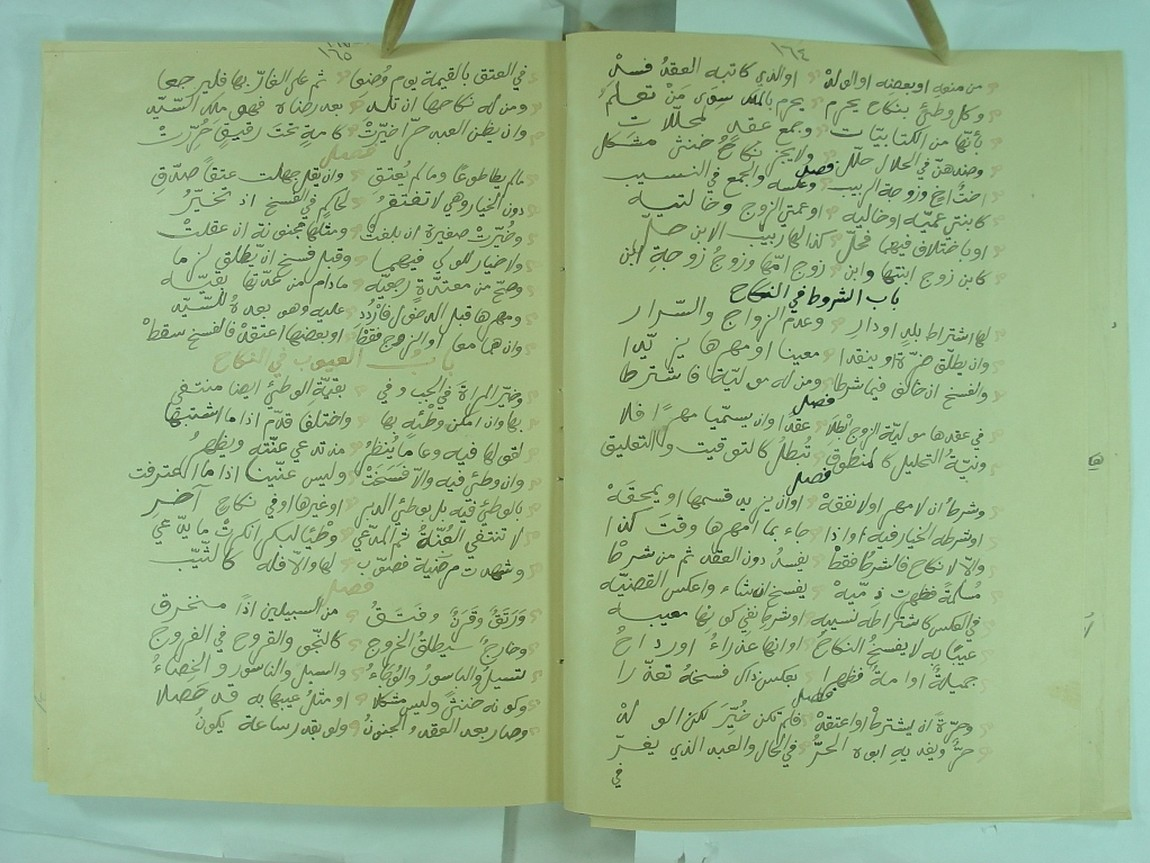 ١٦٤
من منعه او بعضه او الولد او الذي كاتبه العقد فسد
وكل وطئ بنكاح يحرم يحرم بالملك سوى من تعلم
بأنها من الكتابيات وجمع عقد محللات
وضدهن في الحلال حلل ولا يجز نكاح خنثى مشكل
فصل
اخت اخ وزوجة الربيب وعكسه والجمع في النسيب
كابنتي عميه او خاليه او عمتي الزوج وخالتيه
او باختلاف فيهما فحل كذا لها ربيب الابن حل
كابن زوج ابنتها وابن زوج امها وزوج زوجة ابن
باب الشروط في النكاح
لها اشتراط بلد او دار وعدم الزواج والسرار
وان يطلق ضرة او ينقدا معينا او مهرها يزيدا
والفسخ ان خالف فيما شرطا ومن له موليتا فاشترطا
فصل
في عقدها مولية الزوج بطلا عقدا وان يسميا مهرا فلا
ونية التحليل كالمنطوق تبطل كالتوقيت والتعليق
فصل
وشرط ان لا مهر او لا نفقة او ان يزيد قسمها او يمحقه
او شرطه الخيار فيه او اذا جاء بما امهرها وقت كذا
والا لا نكاح فالشرط فقط يفسد دون العقد ثم من شرط
مسلمة فظهرت ذميه يفسخ ان شاء واعكس القضيه
في العكس كاشتراطه نسيبه او شرط نفي كونها معيبه
عيبا به لا يفسخ النكاح او انها عذراء او رداح
جميلة او امة فظهرا بعكس ذاك فسخه تعذرا
فصل
وحرة ان يشترط او اعتقد فلم تكن خير لكن الولد
حر ويفديه ابوه الحر في الحال والعبد الذي يغر
في
١٦٥
في العتق بالقيمة يوم وضعا ثم على الغار بها فليرجعا
ومن له نكاحها ان تلد بعد رضاه فهو ملك السيد
وان يظن العبد حرا خيرت كامة تحت رقيق حررت
فصل
مالم يطا طوعا وما لم يعتق وان يقل جهلت عتقا صدق
دون الخيار وهي لا تفتقر لحاكم في الفسخ اذ تخير
وخيرت صغيرة ان بلغت ومثلها مجنونة ان عقلت
ولا خيار للولي فيهما وقبل فسخ ان يطلق لزما
وصح من معتدة رجعيه مادام من عدتها بقيه
ومهرها قبل الدخول فاردد عليه وهو بعده للسيد
وان هما معا او الزوج فقط او بعضها اعتقد فالفسخ سقط
باب العيوب في النكاح
وخير المراة في الجب وفي بقية الوطئ ايضا منتفي
بها وان امكن وطئه بها واختلفا قدم اذا ما اشتبها
لقولها فيه وعاما ينظر من تدعي عنته ويظهر
وان وطئ فيه والا فسخت وليس عنينا اذا ما اعترفت
بالوطئ فيه بل بوطئ الدبر او غيرها او في نكاح آخر
لا تنتفي العنة ثم المدعي وطئا لبكر انكرت ما يدعي
وشهدت مرضية فصوب لها والا فله كالثيب
فصل
ورتق وقرن وفتق من السبيلين اذا منخرق
وخارج سيطلق الخروج كالنجو والقروح في الفروج
تسيل والباسور والوجاء والسل والناسور والخصاء
وكونه خنثى وليس مشكلا او مثل عيبها به قد حصلا
وصار بعد العقد والجنون ولو بقدر ساعة يكون